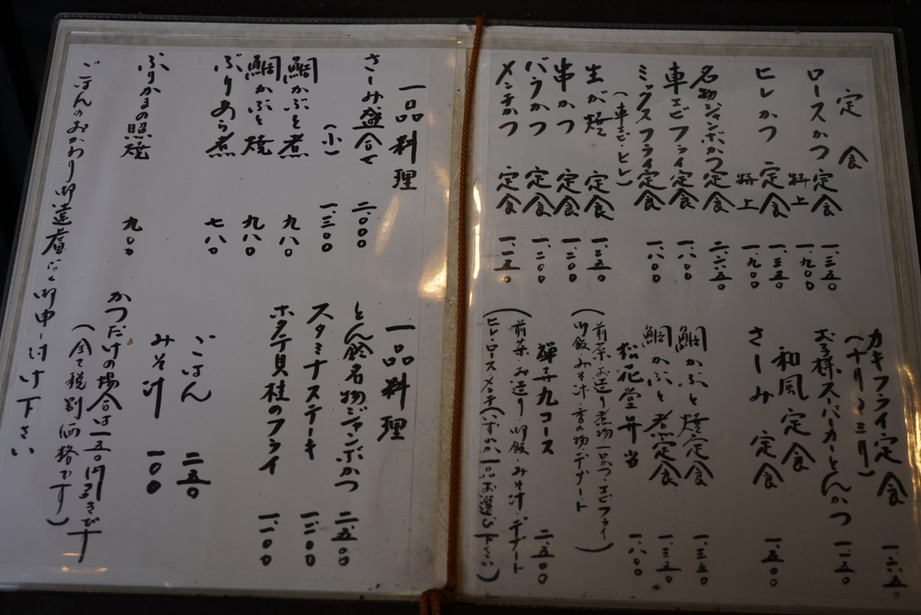 定食
ロースかつ定食 一、三五〇
特上 一、九〇〇
ヒレかつ定食 一、三五〇
特上 一、九〇〇
名物ジャンボかつ定食 二、六五〇
車エビフライ定食 一、八〇〇
ミックスフライ定食 一、八〇〇
(車エビ・ヒレ)
生が焼定食 一、三五〇
串かつ定食 一、二〇〇
バラかつ定食 一、二〇〇
メンチかつ定食 一、一五〇
カキフライ定食 一、六五〇
お子様スーパーカーとんかつ 一、二五〇
和風定食
さしみ定食 一、五〇〇
鯛かぶと焼定食 一、三五〇
鯛かぶと煮定食 一、三五〇
松花堂弁当 一、八〇〇
(前菜・お造り・煮物・一口かつ・エビフライ
御飯・みそ汁・香の物・デザート)
コース 二、五〇〇
(前菜・お造り・御飯・みそ汁・デザート
ヒレ・ロース・メンチ(いずれか一品お選び下さい)
一品料理
さしみ盛合せ 二、〇〇〇
(小) 一、三〇〇
鯛かぶと煮 九八〇
鯛かぶと焼 九八〇
ぶりあら煮 七八〇
ぶりかまの照焼 九〇〇
一品料理
とん鈴名物ジャンボかつ 二、五〇〇
スタミナステーキ 一、二〇〇
ホタテ貝柱のフライ 一、一〇〇
ごはん 二五〇
みそ汁 一〇〇
かつだけの場合は一五〇円引きです
(全て税別価格です)
ごはんのおかわり御遠慮なく御申し付け下さい